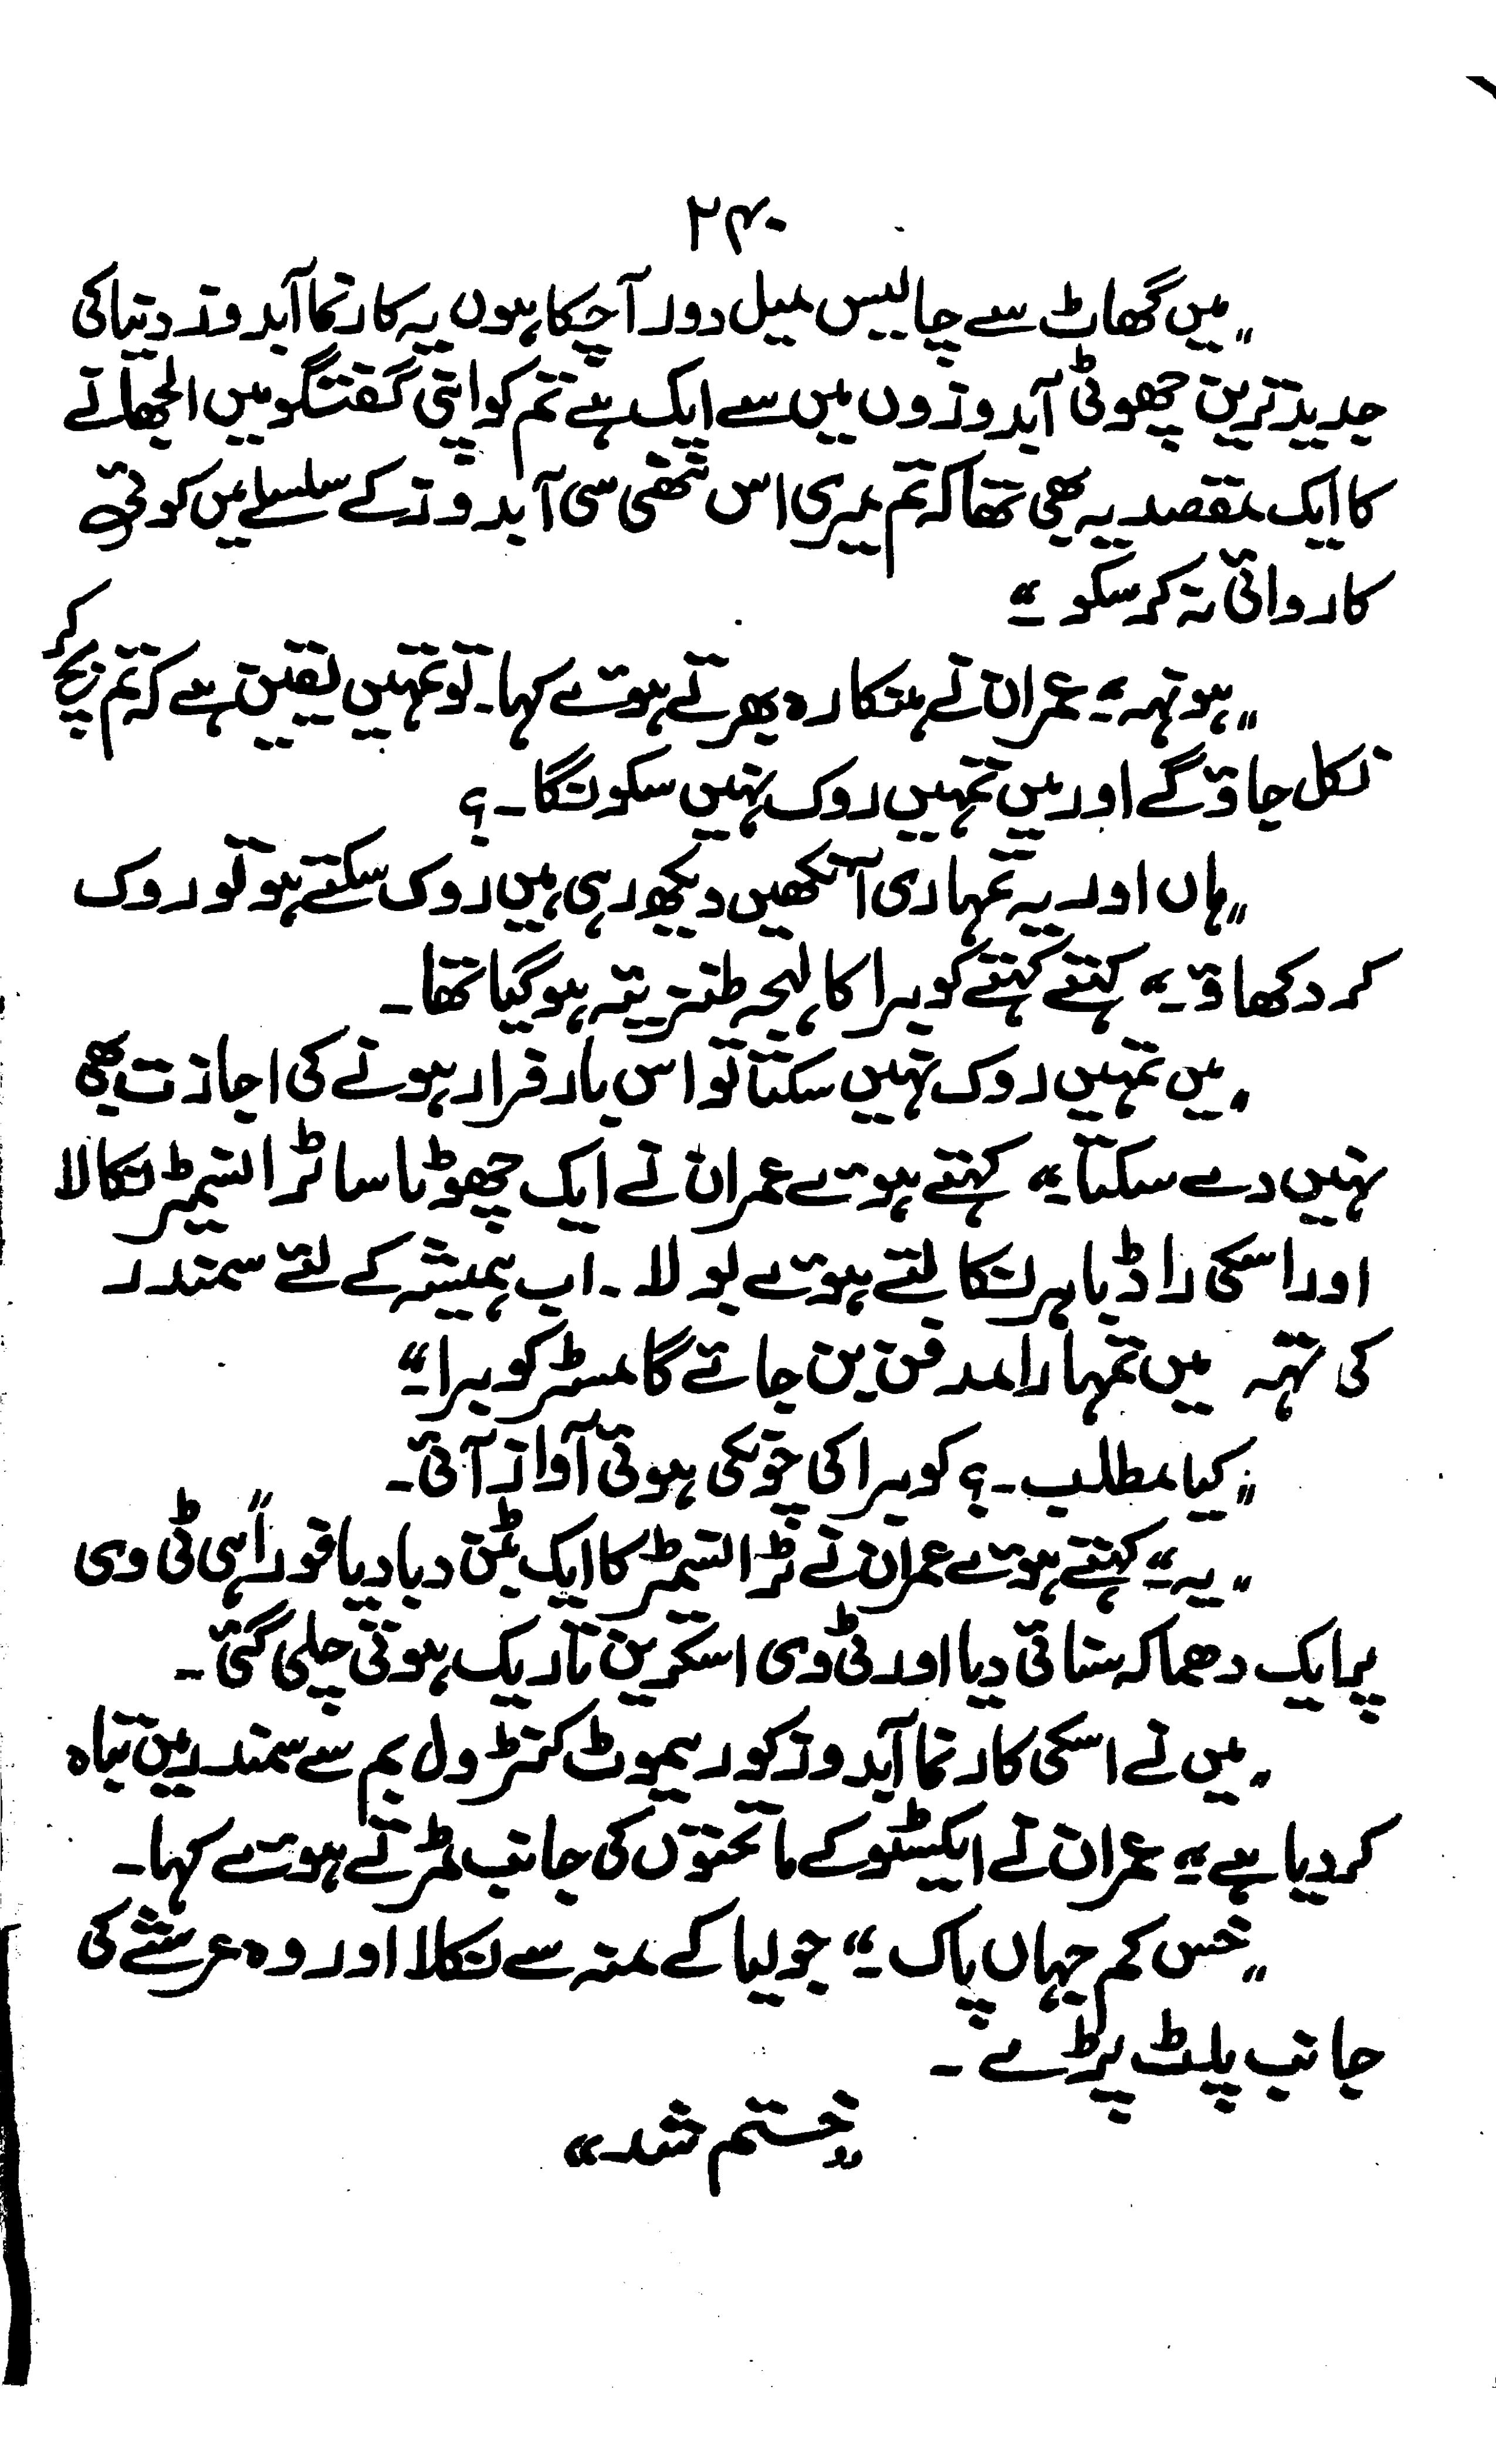 ۲۴۰
"میں گھاٹ سے چالیس میل دور آچکا ہوں یہ کار نما آبدوز دنیا کی
جدید ترین چھوٹی آبدوزوں میں سے ایک ہے تم کو اپنی گفتگو میں الجھانے
کا ایک مقصد یہ بھی تھا کہ تم میری اس ننھی سی آبدوز کے سلسلے میں کوئی
کاروائی نہ کر سکو ۔"
"ہونہہ ۔" عمران نے ہنکارہ بھرتے ہوئے کہا ۔ تو تمہیں یقین ہے کہ تم بچ کر
نکل جاؤ گے اور میں تمہیں روک نہیں سکونگا ۔ ؟
"ہاں اور یہ تمہاری آنکھیں دیکھ رہی ہیں روک سکتے ہو تو روک
کر دکھاؤ ۔" کہتے کہتے کوبرا کا لہجہ طنزیہ ہو گیا تھا ۔
"میں تمہیں روک نہیں سکتا تو اس بار فرار ہونے کی اجازت بھی
نہیں دے سکتا ۔" کہتے ہوئے عمران نے ایک چھوٹا سا ٹرانسمیٹر نکالا
اور اسکی راڈ باہر نکالتے ہوئے بولا ۔ اب ہمیشہ کے لئے سمندر
کی تہہ میں تمہارا مدفن بن جائے گا مسٹر کوبرا ۔"
"کیا مطلب ۔ ؟ کوبرا کی چونکی ہوئی آواز آئی ۔
"یہ ۔" کہتے ہوئے عمران نے ٹرانسمٹر کا ایک بٹن دبا دیا فوراً ہی ٹی وی
پر ایک دھماکہ سنائی دیا اور ٹی وی اسکرین تاریک ہوتی چلی گئی ۔
"میں نے اسکی کار نما آبدوز کو ریموٹ کنٹرول بم سے سمندر میں تباہ
کر دیا ہے ۔" عمران نے ایکسٹو کے ماتحتوں کی جانب مڑتے ہوئے کہا ۔
"خس کم جہاں پاک ۔" جولیا کے منہ سے نکلا اور وہ عرشے کی
جانب پلٹ پڑے ۔
"ختم شد"